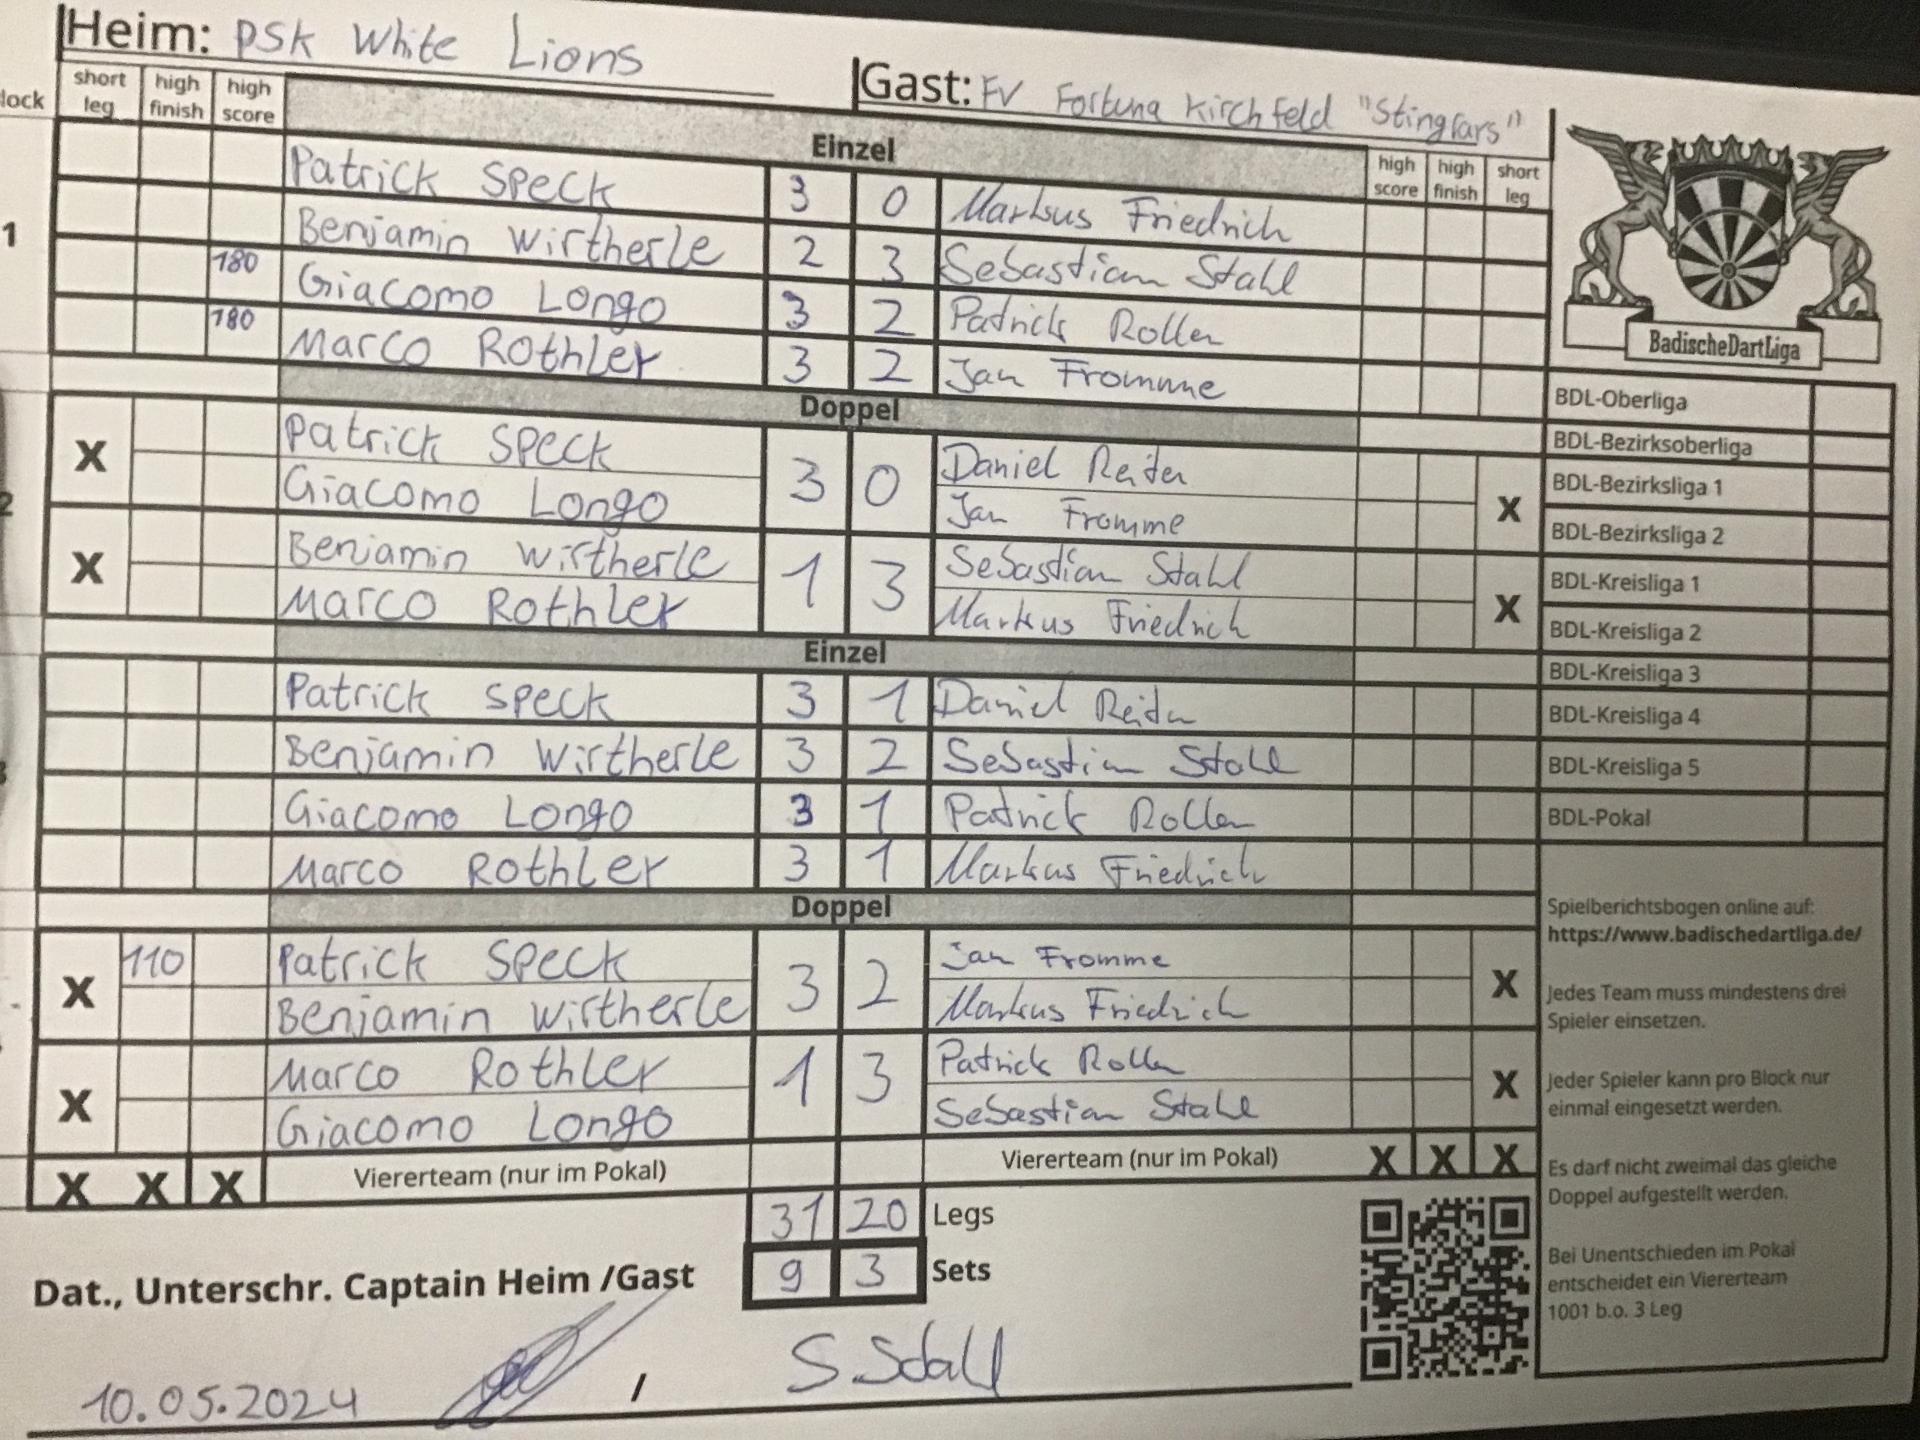 Heim: PSK White Lions
Gast: FV Fortuna Kirchfeld "Stingrars"
lock short leg high finish high score
Einzel
high score high finish short leg
1
Patrick Speck 3 0 Markus Friedrich
Benjamin Wirtherle 2 3 Sebastian Stahl
180 Giacomo Longo 3 2 Patrick Roller
180 Marco Rothler 3 2 Jan Fromme
Doppel
2
X Patrick Speck 3 0 Daniel Reiter X
Giacomo Longo Jan Fromme
X Benjamin Wirtherle 1 3 Sebastian Stahl X
Marco Rothler Markus Friedrich
Einzel
Patrick Speck 3 1 Daniel Reiter
Benjamin Wirtherle 3 2 Sebastian Stahl
Giacomo Longo 3 1 Patrick Roller
Marco Rothler 3 1 Markus Friedrich
Doppel
X 110 Patrick Speck 3 2 Jan Fromme X
Benjamin Wirtherle Markus Friedrich
X Marco Rothler 1 3 Patrick Roller X
Giacomo Longo Sebastian Stahl
X X X Viererteam (nur im Pokal) Viererteam (nur im Pokal) X X X
31 20 Legs
9 3 Sets
Dat., Unterschr. Captain Heim /Gast
10.05.2024 / S.Stahl
BadischeDartLiga
BDL-Oberliga
BDL-Bezirksoberliga
BDL-Bezirksliga 1
BDL-Bezirksliga 2
BDL-Kreisliga 1
BDL-Kreisliga 2
BDL-Kreisliga 3
BDL-Kreisliga 4
BDL-Kreisliga 5
BDL-Pokal
Spielberichtsbogen online auf:
https://www.badischedartliga.de/
Jedes Team muss mindestens drei
Spieler einsetzen.
Jeder Spieler kann pro Block nur
einmal eingesetzt werden.
Es darf nicht zweimal das gleiche
Doppel aufgestellt werden.
Bei Unentschieden im Pokal
entscheidet ein Viererteam
1001 b.o. 3 Leg